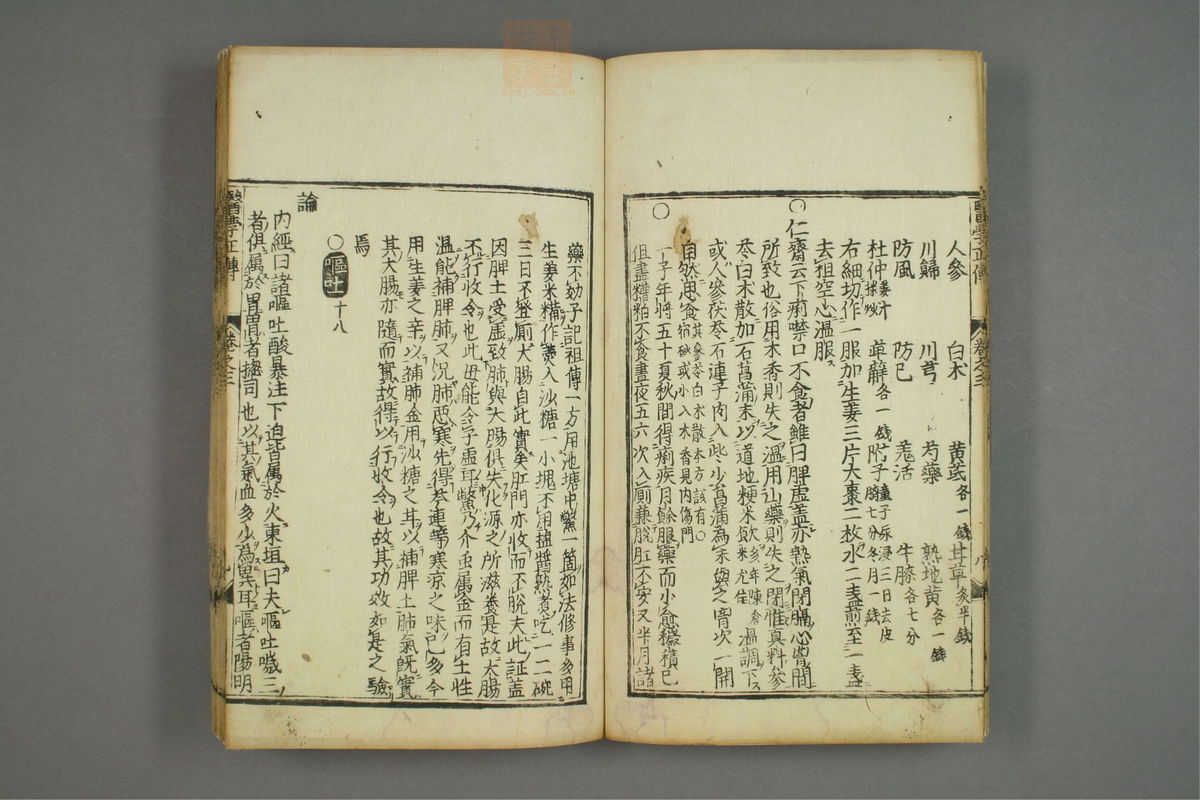 人參 白朮 黃芪各一錢 甘草炙半錢
川歸 川芎 芍藥 熟地黃各一錢
防風 防已 羗活 牛膝各七分
杜仲姜汁拌炒 萆薢各一錢 附子童子尿浸三日去皮臍七分冬月一錢
右細切作一服加生姜三片大棗二枚水二盞煎至一盞
去柤空心溫服
○仁齋云下痢噤口不食者雖曰脾虛盖亦熱氣閉隔心胷間
所致也俗用木香則失之溫用山藥則失之閉惟真料參
苓白朮散加石菖蒲末以道地粳米飲多年陳倉米尤佳溫調下
或人參茯苓石連子肉入些少菖蒲為末與之胷次一開
自然思食其參苓白朮散本方該有宿砂或小入木香見內傷門○
○一子年將五十夏秋間得痢疾月餘服藥而小愈穢積已
但盡糟粕不食晝夜五六次入厠兼脫肛不安又半月諸
藥不効予記祖傳一方用池塘中鱉一箇如法修事多用
生姜米糯作羹入沙糖一小塊不用塩醬熟煮吃一二碗
三日不登厠大腸自此實矣肛門亦收而不脫夫此証盖
因脾土受虛致肺與大腸俱失化源之所滋養是故大腸
不行收令也此毋能令子虛耳鱉乃介虫属金而有土性
溫能補脾肺又況肺惡寒先得苓連等寒涼之味已多今
用生姜之辛以補肺金用沙糖之甘以補脾土肺氣既實
其大腸亦隨而實故得以行收令也故其功效如是之驗
焉
○嘔吐 十八
論
內經曰諸嘔吐酸暴注下迫皆属於火東垣曰夫嘔吐噦三
者俱属於胃胃者摠司也以其氣血多少為異耳嘔者陽明
醫學正傳
卷之三
醫學正傳
卷之三